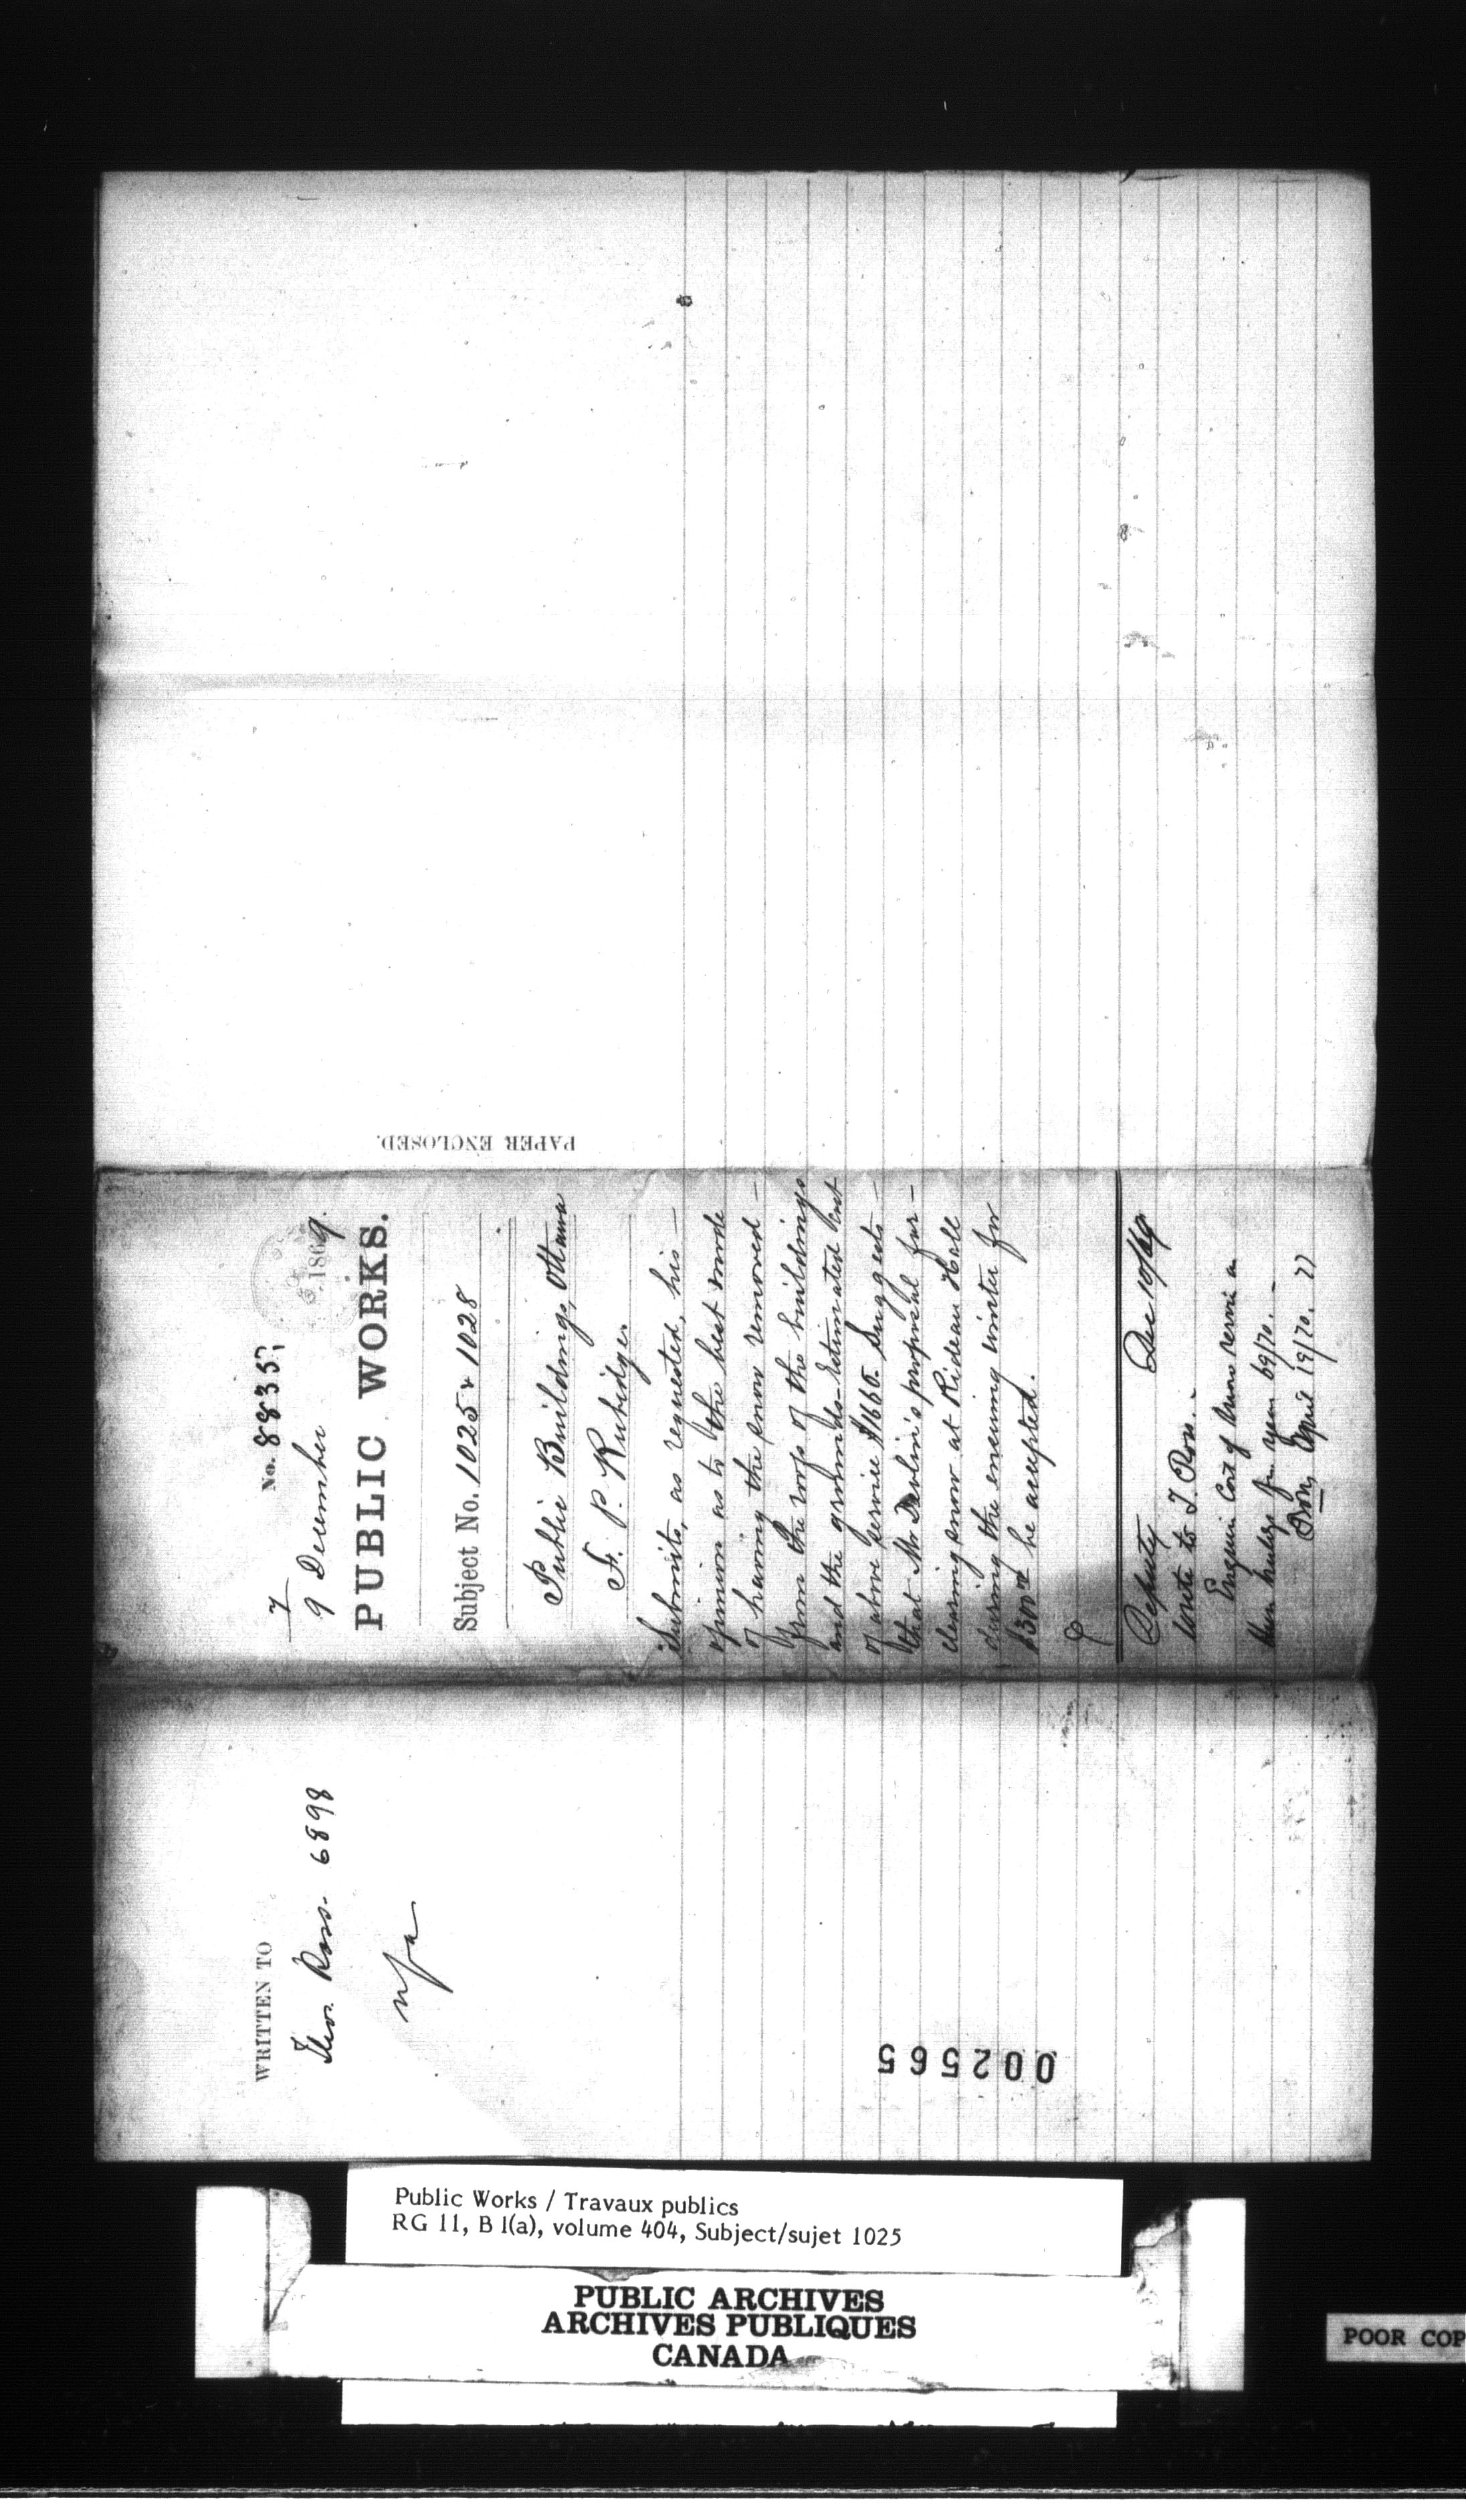 No. 8835
7
9 December 1869.
PUBLIC WORKS.
Subject No. 1025 & 1028
Public Buildings, Ottawa
F. P. Rubidge.
Submits, as requested, his
opinion as to the best mode
of having the snow removed
from the roofs of the buildings
and the grounds - Estimated cost
of above service $1660. Suggests
that Mr Devlin's proposal for
clearing snow at Rideau Hall
during the ensuing winter for
$300 be accepted.
Deputy Dec 10/69
wrote to T. Ross. -
Enquiri Cost of snow
year 69/70. -
April 19/70.
PAPER ENCLOSED.
WRITTEN TO
Thos. Ross. 6898
nfa
002565
Public Works / Travaux publics
RG 11, B 1(a), volume 404, Subject/sujet 1025
PUBLIC ARCHIVES
ARCHIVES PUBLIQUES
CANADA
POOR COP